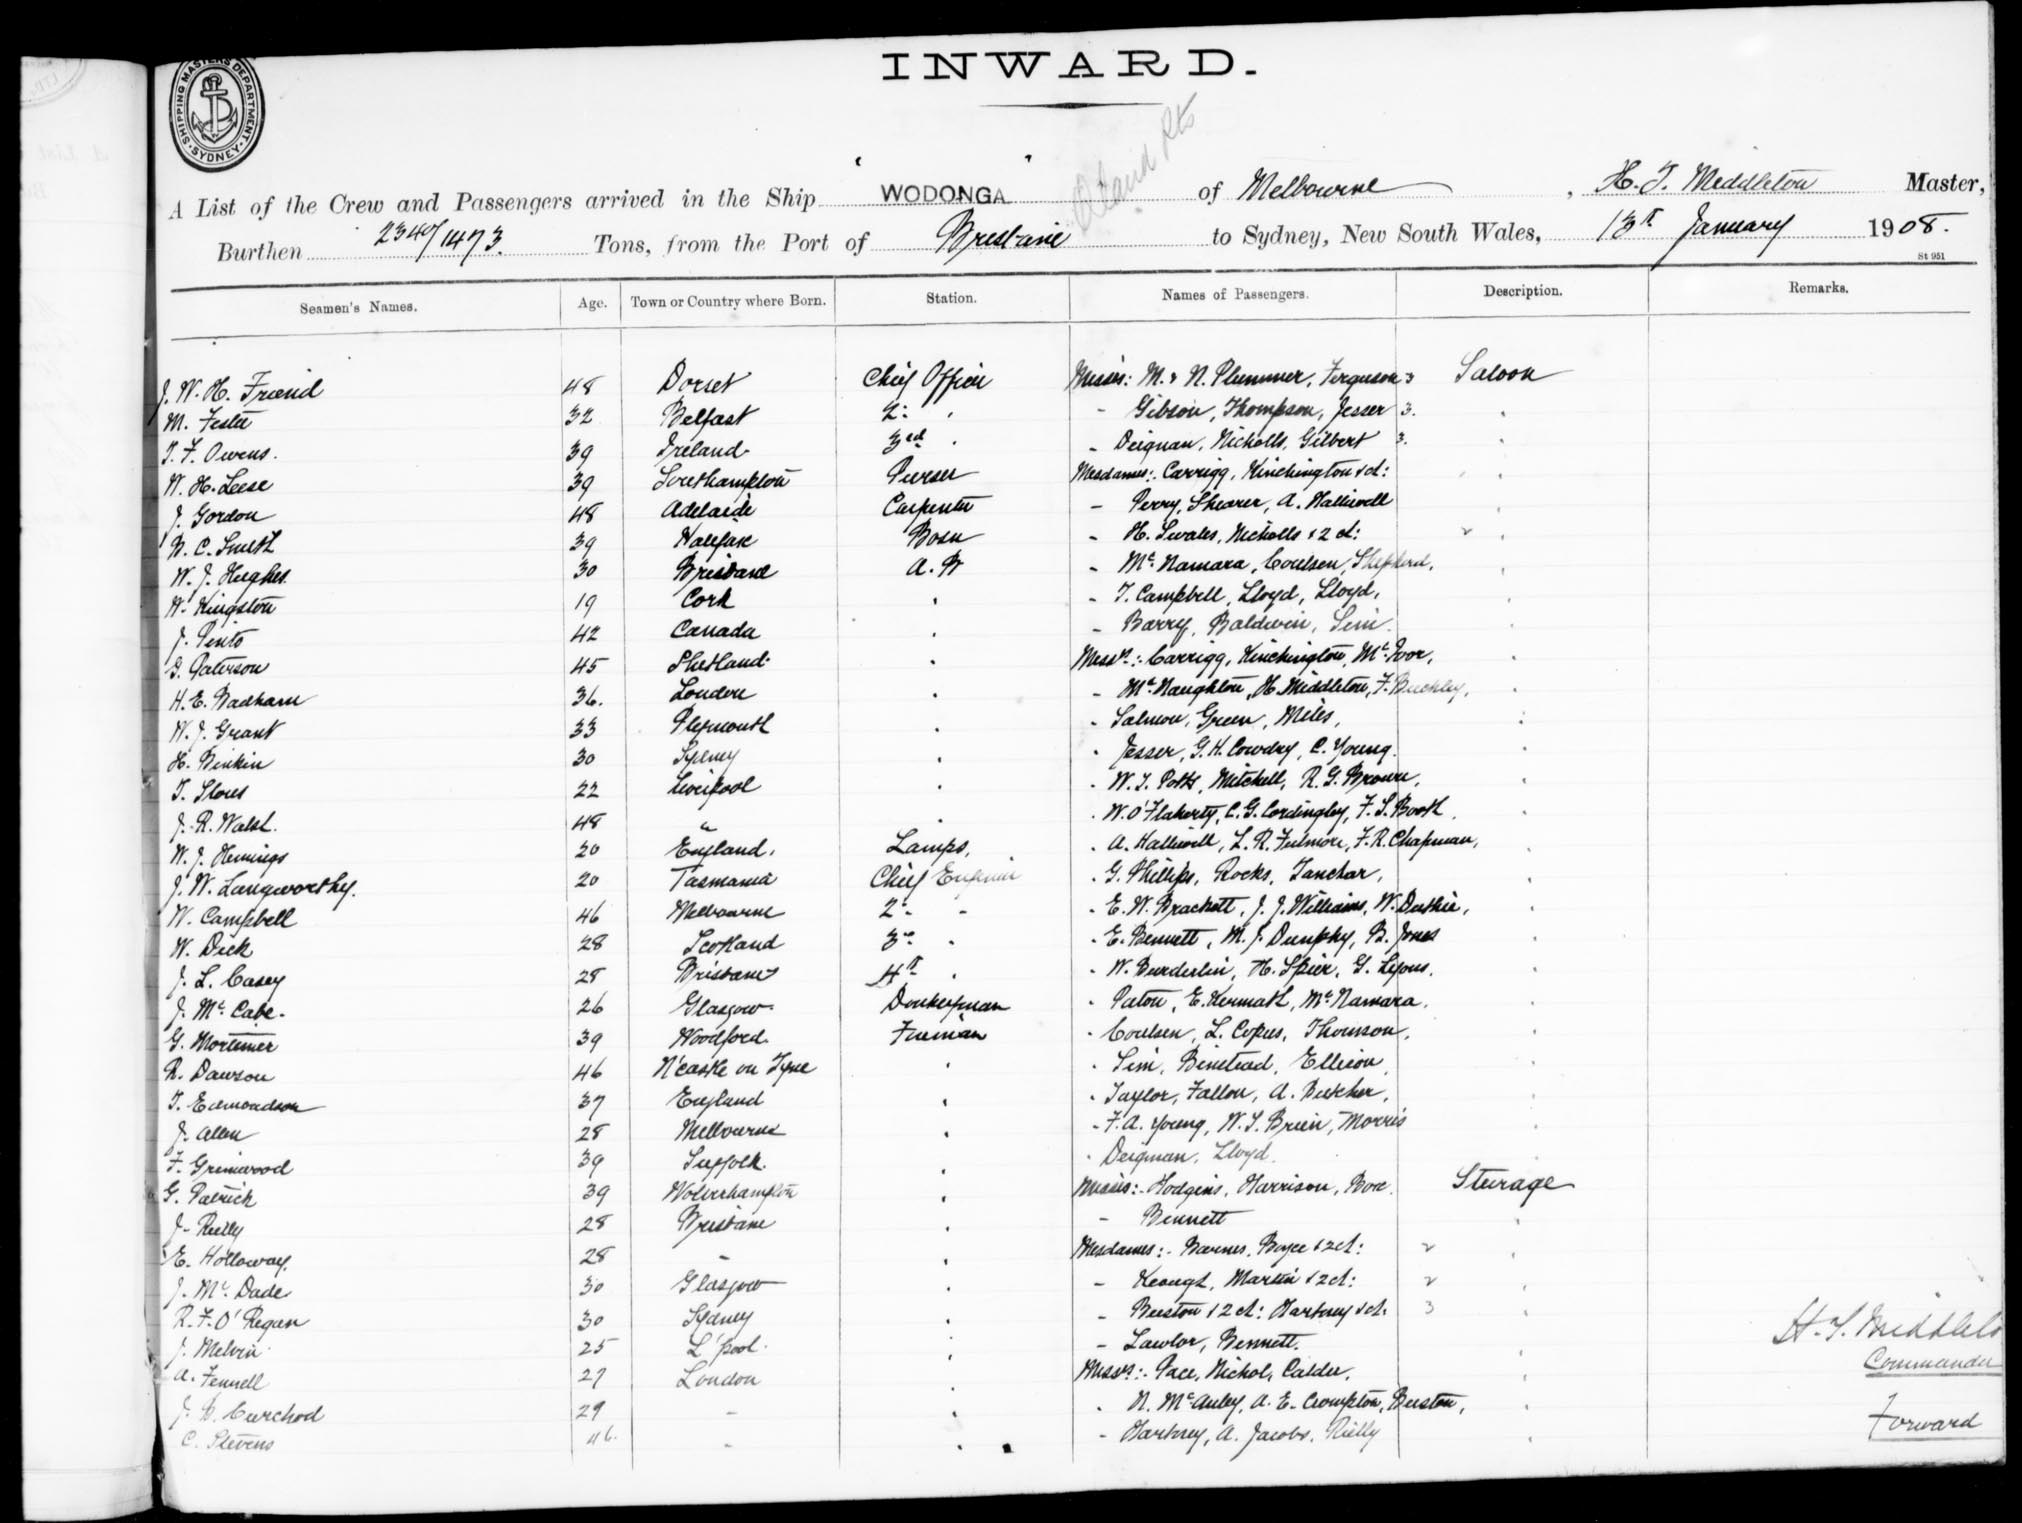 INWARD.
SHIPPING MASTERS DEPARTMENT. SYDNEY
A List of the Crew and Passengers arrived in the Ship WODONGA of Melbourne, H. T. Middleton Master,
Burthen 2340/1473. Tons, from the Port of Brisbane to Sydney, New South Wales, 13th January 1908.
St 951
Seamen's Names. Age. Town or Country where Born. Station. Names of Passengers. Description. Remarks.
J. W. H. Friend 48 Dorset Chief Officer Misses: M. & N. Plummer, Ferguson 3 Saloon
M. Fester 32 Belfast 2: " - Gibson, Thompson, Jesser 3.
T. F. Owens. 39 Ireland 3rd " - Deignan, Nicholls, Gilbert 3.
W. H. Leese 39 Southampton Purser Mesdames: Carrigg, Kinchington & ch:
J. Gordon 48 Adelaide Carpenter - Perry, Shearer, A. Halliwell
B. C. Smith 39 Halifax Bosn - H. Swales, Nicholls & 2 ch: 2
W. J. Hughes. 30 Brisbane A. B - McNamara, Coulsen, Shepherd,
W. Kingston 19 Cork " - T. Campbell, Lloyd, Lloyd,
J. Pinto 42 Canada " - Barry, Baldwin, Sim.
G. Paterson 45 Shetland " Messrs:- Carrigg, Kinchington, McIvor,
H. E. Badham 36. London " - McNaughton, H. Middleton, F. Buckley,
W. J. Grant 33 Plymouth " - Salmon, Green, Miles,
H. Binkin 30 Sydney " - Jesser, G. H. Cowdry, C. Young.
T. Slous 22 Liverpool " - W. T. Potts, Mitchell, R. G. Brown,
J. R. Walsh. 48 " " - W. O'Flaherty, C. G. Cordingley, F. S. Booth,
W. J. Hemings 20 England. Lamps, - A. Halliwell, L. R. Fulmore, F. R. Chapman,
J. W. Langworthy. 20 Tasmania Chief Engineer - G. Phillips, Rocks, Tanchar,
W. Campbell 46 Melbourne 2: - - E. W. Brackett, J. J. Williams, W. Duthie,
W. Dick 28 Scotland 3rd " - E. Bennett, M. J. Dunphy, B. Jones
J. L. Casey 28 Brisbane 4th " - W. Burderlin, H. Spier, G. Lyons,
J. McCabe. 26 Glasgow. Donkeyman - Paton, E. Kermath, McNamara,
G. Mortimer 39 Woodford. Fireman - Coulsen, L. Copus, Thomson,
R. Dawson 46 N'castle on Tyne " - Sim, Binstead, Ellison,
T. Edmondson 37 England " - Taylor, Fallon, A. Butcher,
J. Allen 28 Melbourne " - F. A. Young, W. S. Brien, Morris
F. Grimwood 39 Suffolk. " - Deignan, Lloyd.
G. Patrick 39 Wolverhampton " Misses:- Hodgins, Harrison, Box. Steerage
J. Reilly 28 Brisbane " - Bennett
E. Holloway. 28 - " Mesdames:- Barnes, Boyce & 2 ch: 2
J. McDade 30 Glasgow " - Keough, Martin & 2 ch: 2
R. F. O'Regan 30 Sydney " - Beeston & 2 ch: Harkney & ch: 3
J. Melvin 25 L'pool. " - Lawlor, Bennett. H. T. Middleto
A. Fennell 27 London " Messrs:- Pace, Nichol, Calder, Commander
J. B. Curchod 29 - " - N. McAuley, A. E. Crompton, Beeston,
C. Stevens 46. - " - Harkney, A. Jacobs, Rielly Forward